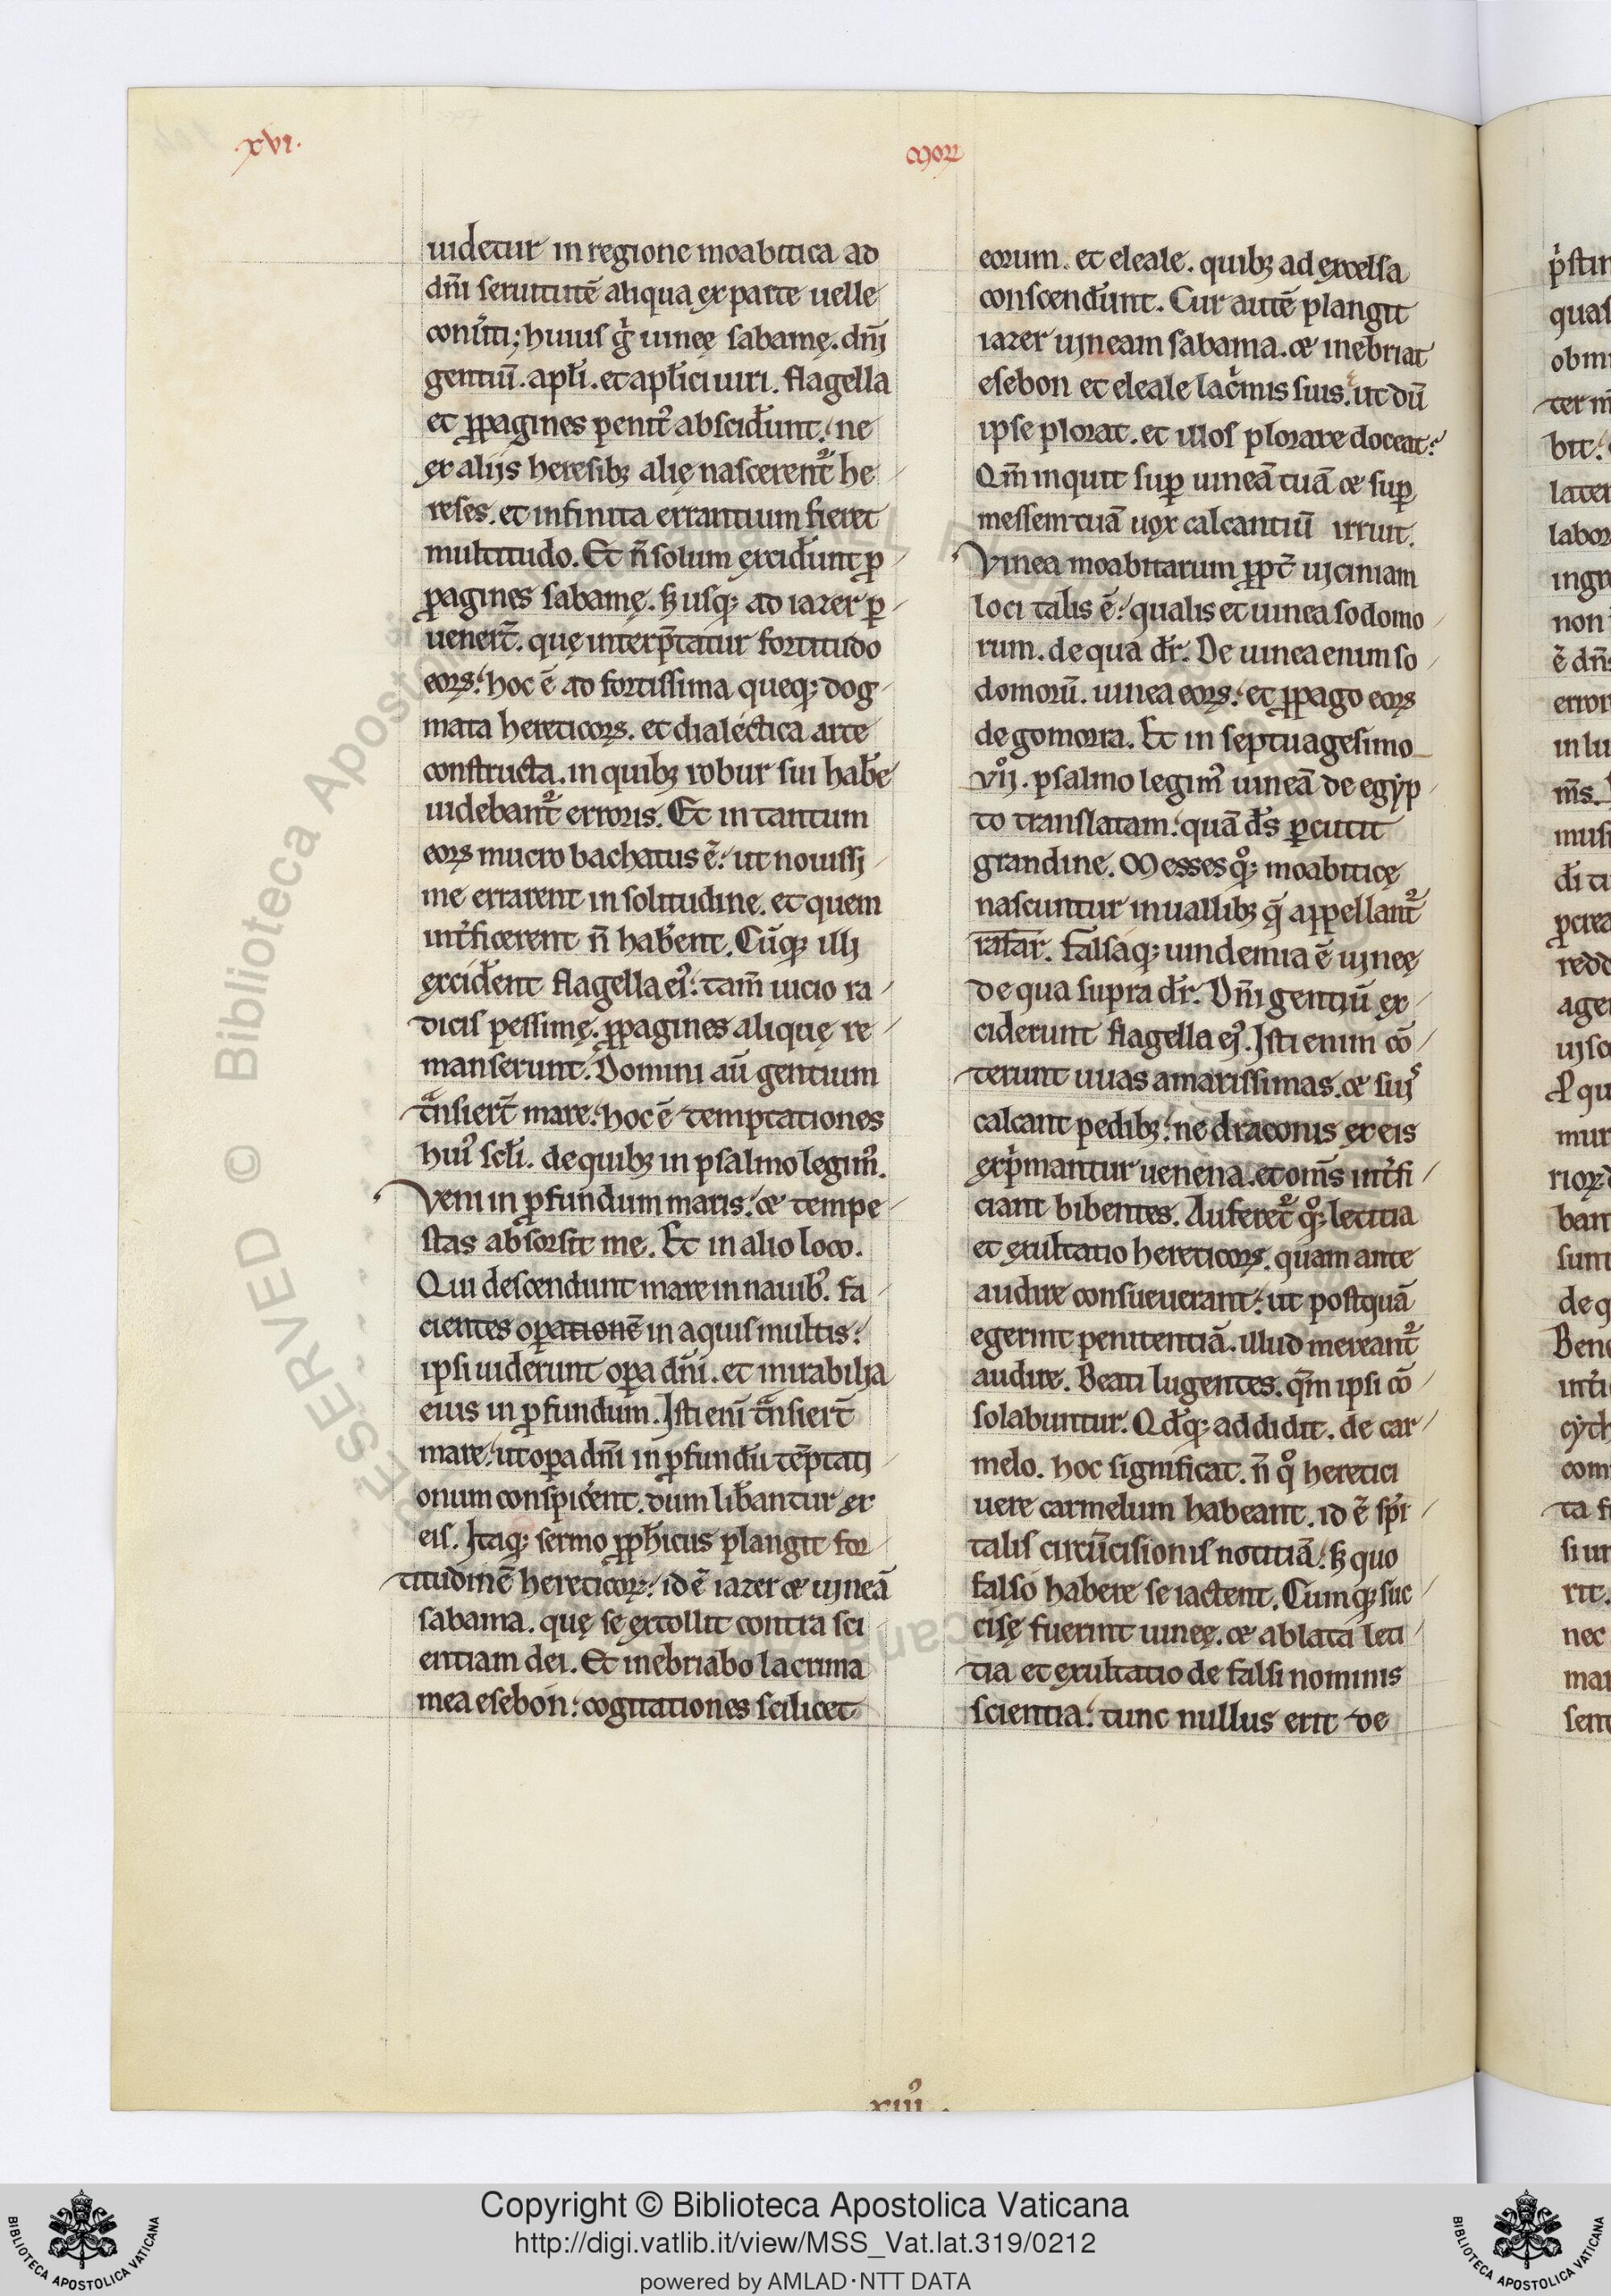 .xvi.
uidetur in regione moabitica ad
dn̄i seruitutē aliqua ex parte uelle
conu̓ti; huius g̊ uineę sabamę. dn̄j
gentiū. apl̄i. et apl̄ici uiri. flagella
et ꝓpagines penitꝰ absciderunt: ne
ex alijs heresibꝫ alię nascerent᷑ he
reses. et infinita errantium fieret
multitudo. Et n̄ solum exciderunt ꝓ
pagines sabamę. sꝫ usqꝫ ad iazer ꝑ
uenert̄. quę interp̄tatur fortitudo
eoꝝ: hoc ē ad fortissima queqꝫ dog
mata hereticoꝝ. et dialectica arte
constructa. in quibꝫ robur sui habe
uidebant᷑ erroris. Et in tantum
eoꝝ mucro bachatus ē: ut nouissi
me errarent in solitudine. et quem
int̓ficerent n̄ haberent. Cūqꝫ illi
exciderent flagella eiꝰ: tam̄ uicio ra
dicis pessimę. ꝓpagines aliquę re
manserunt. Domini aū gentium
tͣnsiert̄ mare: hoc ē temptationes
huiꝰ scl̄i. de quibꝫ in psalmo legimꝰ.
Veni in ꝓfundum maris: & tempe
stas absorsit me. Et in alio loco.
Qui descendunt mare in nauibꝰ. fa
cientes oꝑationē in aquis multis:
ipsi uiderunt oꝑa dn̄i. et mirabilia
eius in ꝓfundum. Isti eni tͣnsiert̄
mare: ut oꝑa dn̄i in ꝓfundū tēptati
onum conspicerent. dum liberantur ex
eis. Itaqꝫ sermo ꝓpheticus plangit for
titudinē hereticoꝝ: id ē iazer & uineā
sabama. quę se extollit contra sci
entiam dei. Et inebriabo lacrima
mea esebon: cogitationes scilicet
Mor
eorum. et eleale. quibꝫ ad excelsa
conscenderunt. Cur autē plangit
iazer uineam sabama. & inebriat
esebon et eleale lac̓mis suis: ut dū
ipse plorat. et illos plorare doceat:
Qm̄ inquit suꝑ uineā tuā & suꝑ
messem tuā uox calcantiū irruit.
Vinea moabitarum ꝓpt̄ uiciniam
loci talis ē: qualis et uinea sodomo
rum. de qua dr̄. De uinea enim so
domorū. uinea eoꝝ: et ꝓpago eoꝝ
de gomorra. Et in septuagesimo
vijͦ. psalmo legimꝰ uineā de egyp
to translatam: quā ds̄ ꝑcutit
grandine. Messes qͦqꝫ moabiticę
nascuntur in uallibꝫ q̄ appellant᷑
rafar. falsaqꝫ uindemia ē uineę
de qua supra dr̄. Dn̄i gentiū ex
ciderunt flagella eiꝰ. Isti enim cō
terunt uuas amarissimas. & suis
calcant pedibꝫ: ne draconis ex eis
exp̓mantur uenena. et om̄s int̓fi
ciant bibentes. Auferet᷑ qͦqꝫ letitia
et exultatio hereticoꝝ. quam ante
audire consueuerant: ut postquā
egerint penitentiā. illud mereant᷑
audire. Beati lugentes. qm̄ ipsi cō
solabuntur. Qd̓qꝫ addidit. de car
melo. hoc significat. n̄ qͦ heretici
uere carmelum habeant. id ē spi
talis circūcisionis notitiā: sꝫ quo
falso habere se iactent. Cumqꝫ suc
cisę fuerint uineę. & ablata leti
tia et exultatio de falsi nominis
scientia: tunc nullus erit de
xiiiꝰ.
p̓stin
quas
ob mi
labor
non
error
in lu
Bene
Biblioteca Apostolica
©
RESERVED
Copyright © Biblioteca Apostolica Vaticana
http://digi.vatlib.it/view/MSS_Vat.lat.319/0212
powered by AMLAD·NTT DATA
BIBLIOTECA APOSTOLICA VATICANA
BIBLIOTECA APOSTOLICA VATICANA